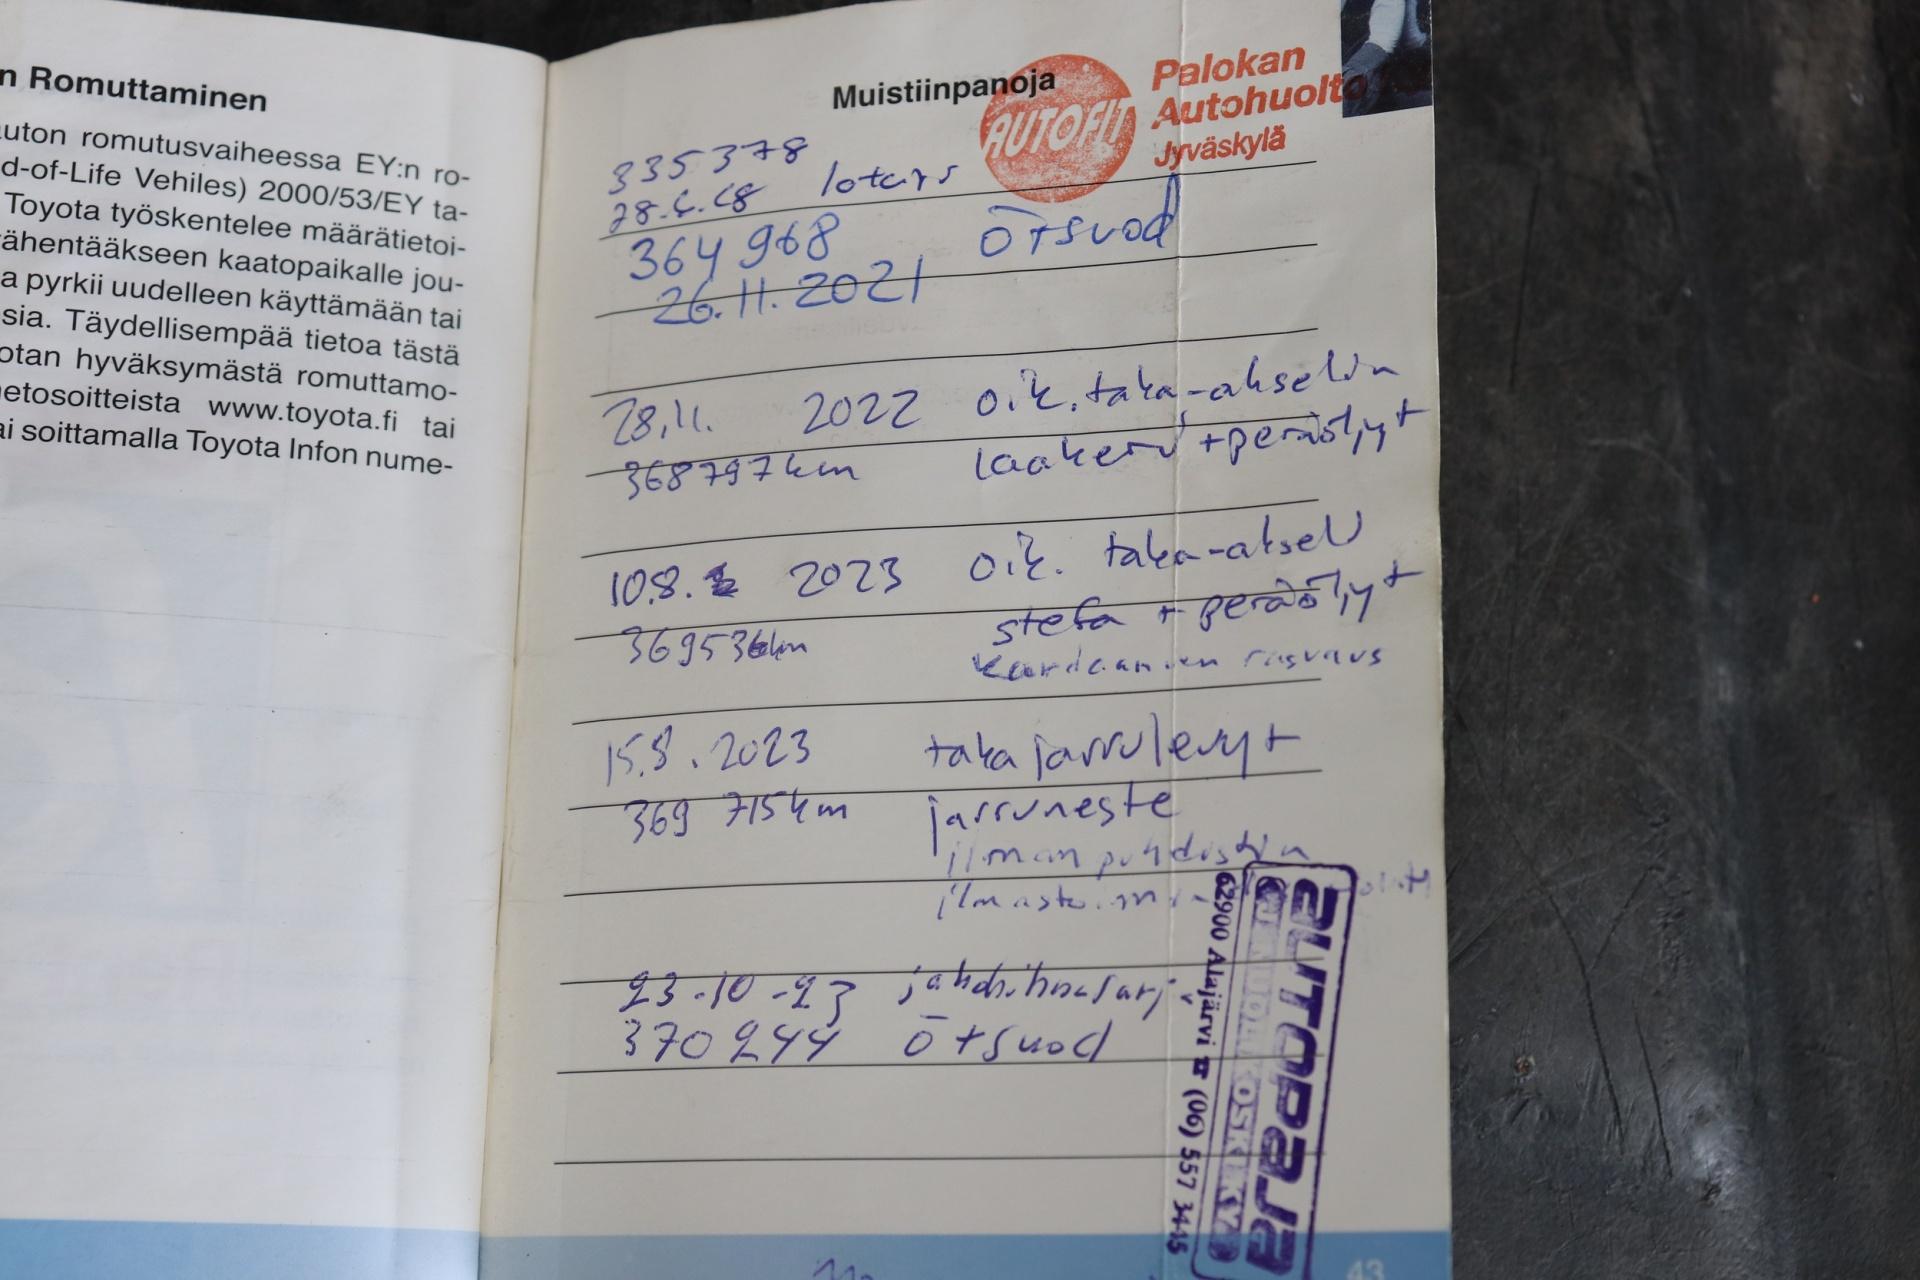 n Romuttaminen
uton romutusvaiheessa EY:n ro-
d-of-Life Vehiles) 2000/53/EY ta-
Toyota työskentelee määrätietoi-
ähentääkseen kaatopaikalle jou-
a pyrkii uudelleen käyttämään tai
sia. Täydellisempää tietoa tästä
otan hyväksymästä romuttamo-
etosoitteista www.toyota.fi tai
ai soittamalla Toyota Infon nume-
Muistiinpanoja
AUTOFIT
Palokan
Autohuolto
Jyväskylä
335378
28.6.18
364 968 ÖTSUOD
26.11.2021
28.11. 2022 oik. taka-akselin
368797km laakeri + peräöljyt
10.8. 2023 oik. taka-akseli
369536km stefa + peräöljyt
kardaanien rasvaus
15.8.2023 takajarrulevyt
369 715km jarruneste
ilmanpuhdistin
23-10-23
370244 ÖTSUOD
AUTOPAJA
62900 Alajärvi ☎ (06) 557 3445
43